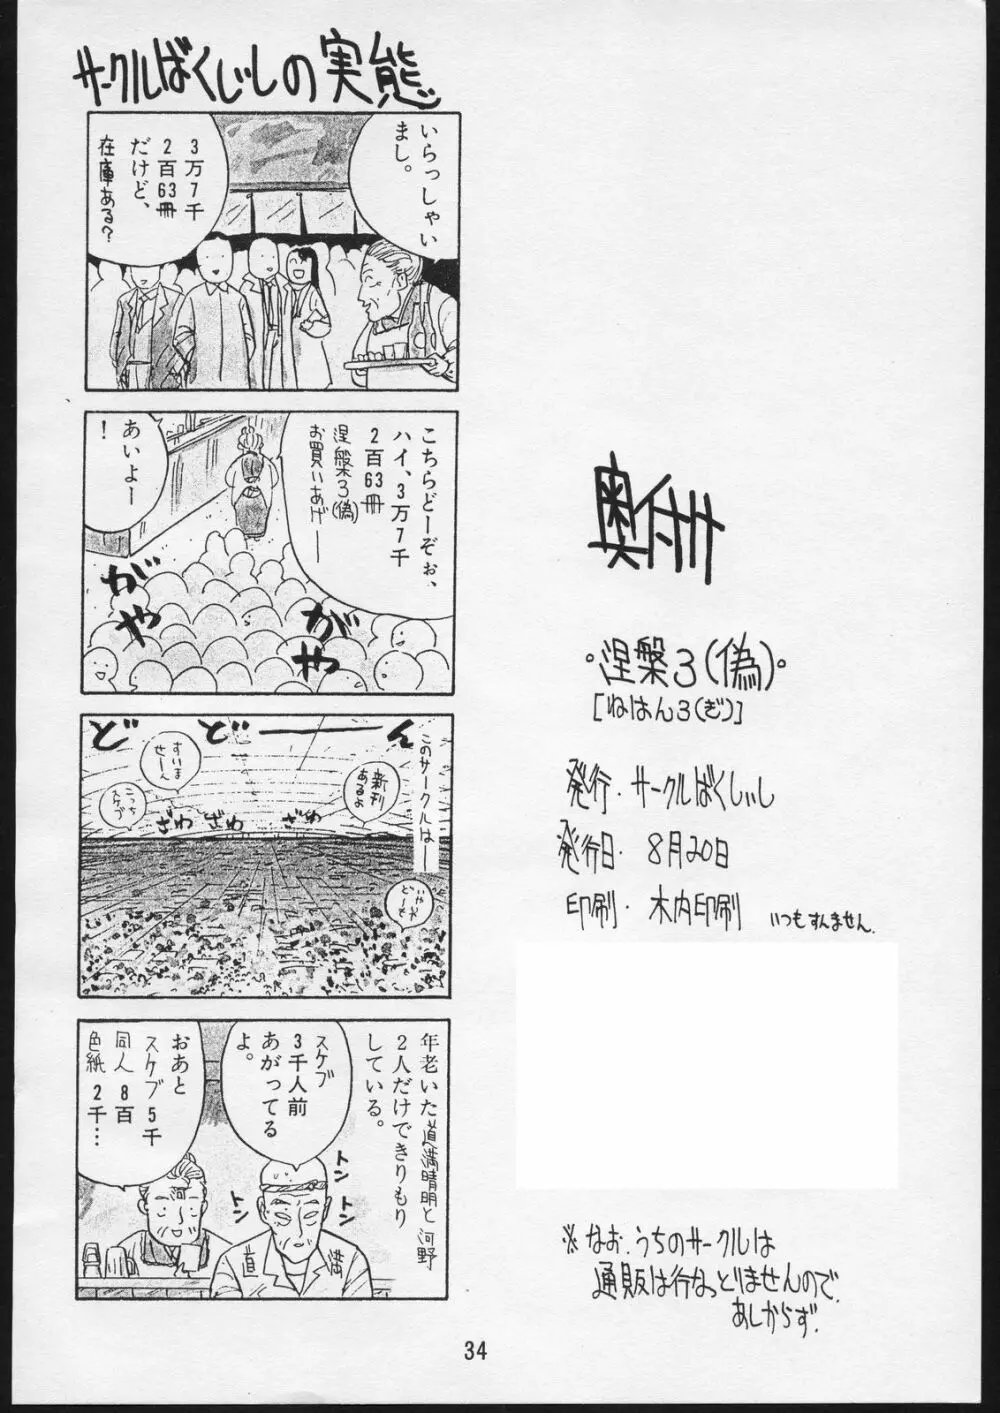 サークルばくしぃしの実態
いらっしゃい
まし。
3万7千
2百63冊
だけど、
在庫ある?
こちらどーぞぉ、
ハイ、3万7千
2百63冊
涅槃3(偽)
お買いあげ――
あいよー
!
がや
がや
ど ど――ん
このサークルは――
新刊
あるよ
すいま
せーん
こっち
スケブ
ざわ ざわ ざわ
どーも
年老いた道満晴明と河野
2人だけできりもり
している。
スケブ
3千人前
あがってる
よ。
おあと
スケブ5千
同人8百
色紙2千…
トン
トン
トン
トン
河
道満
34
奥付
・涅槃3(偽)・
[ねはん3(ぎ)]
発行・サークルばくしぃし
発行日・8月20日
印刷・木内印刷 いつもすんません.
※なお、うちのサークルは
通販は行なっとりませんので、
あしからず.